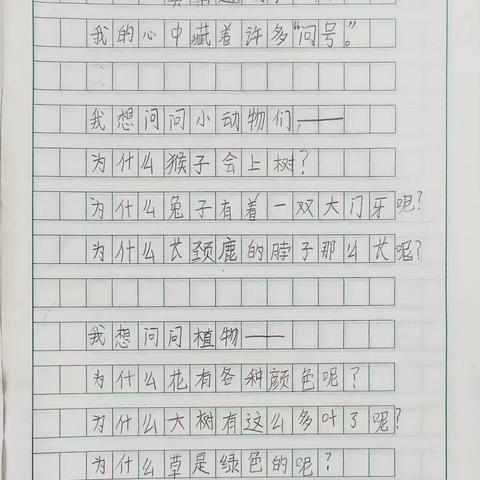 我的心中藏着许多“问号”。
我想问问小动物们,——
为什么猴子会上树?
为什么兔子有着一双大门牙呢?
为什么长颈鹿的脖子那么长呢?
我想问问植物——
为什么花有各种颜色呢?
为什么大树有这么多叶子呢?
为什么草是绿色的呢?